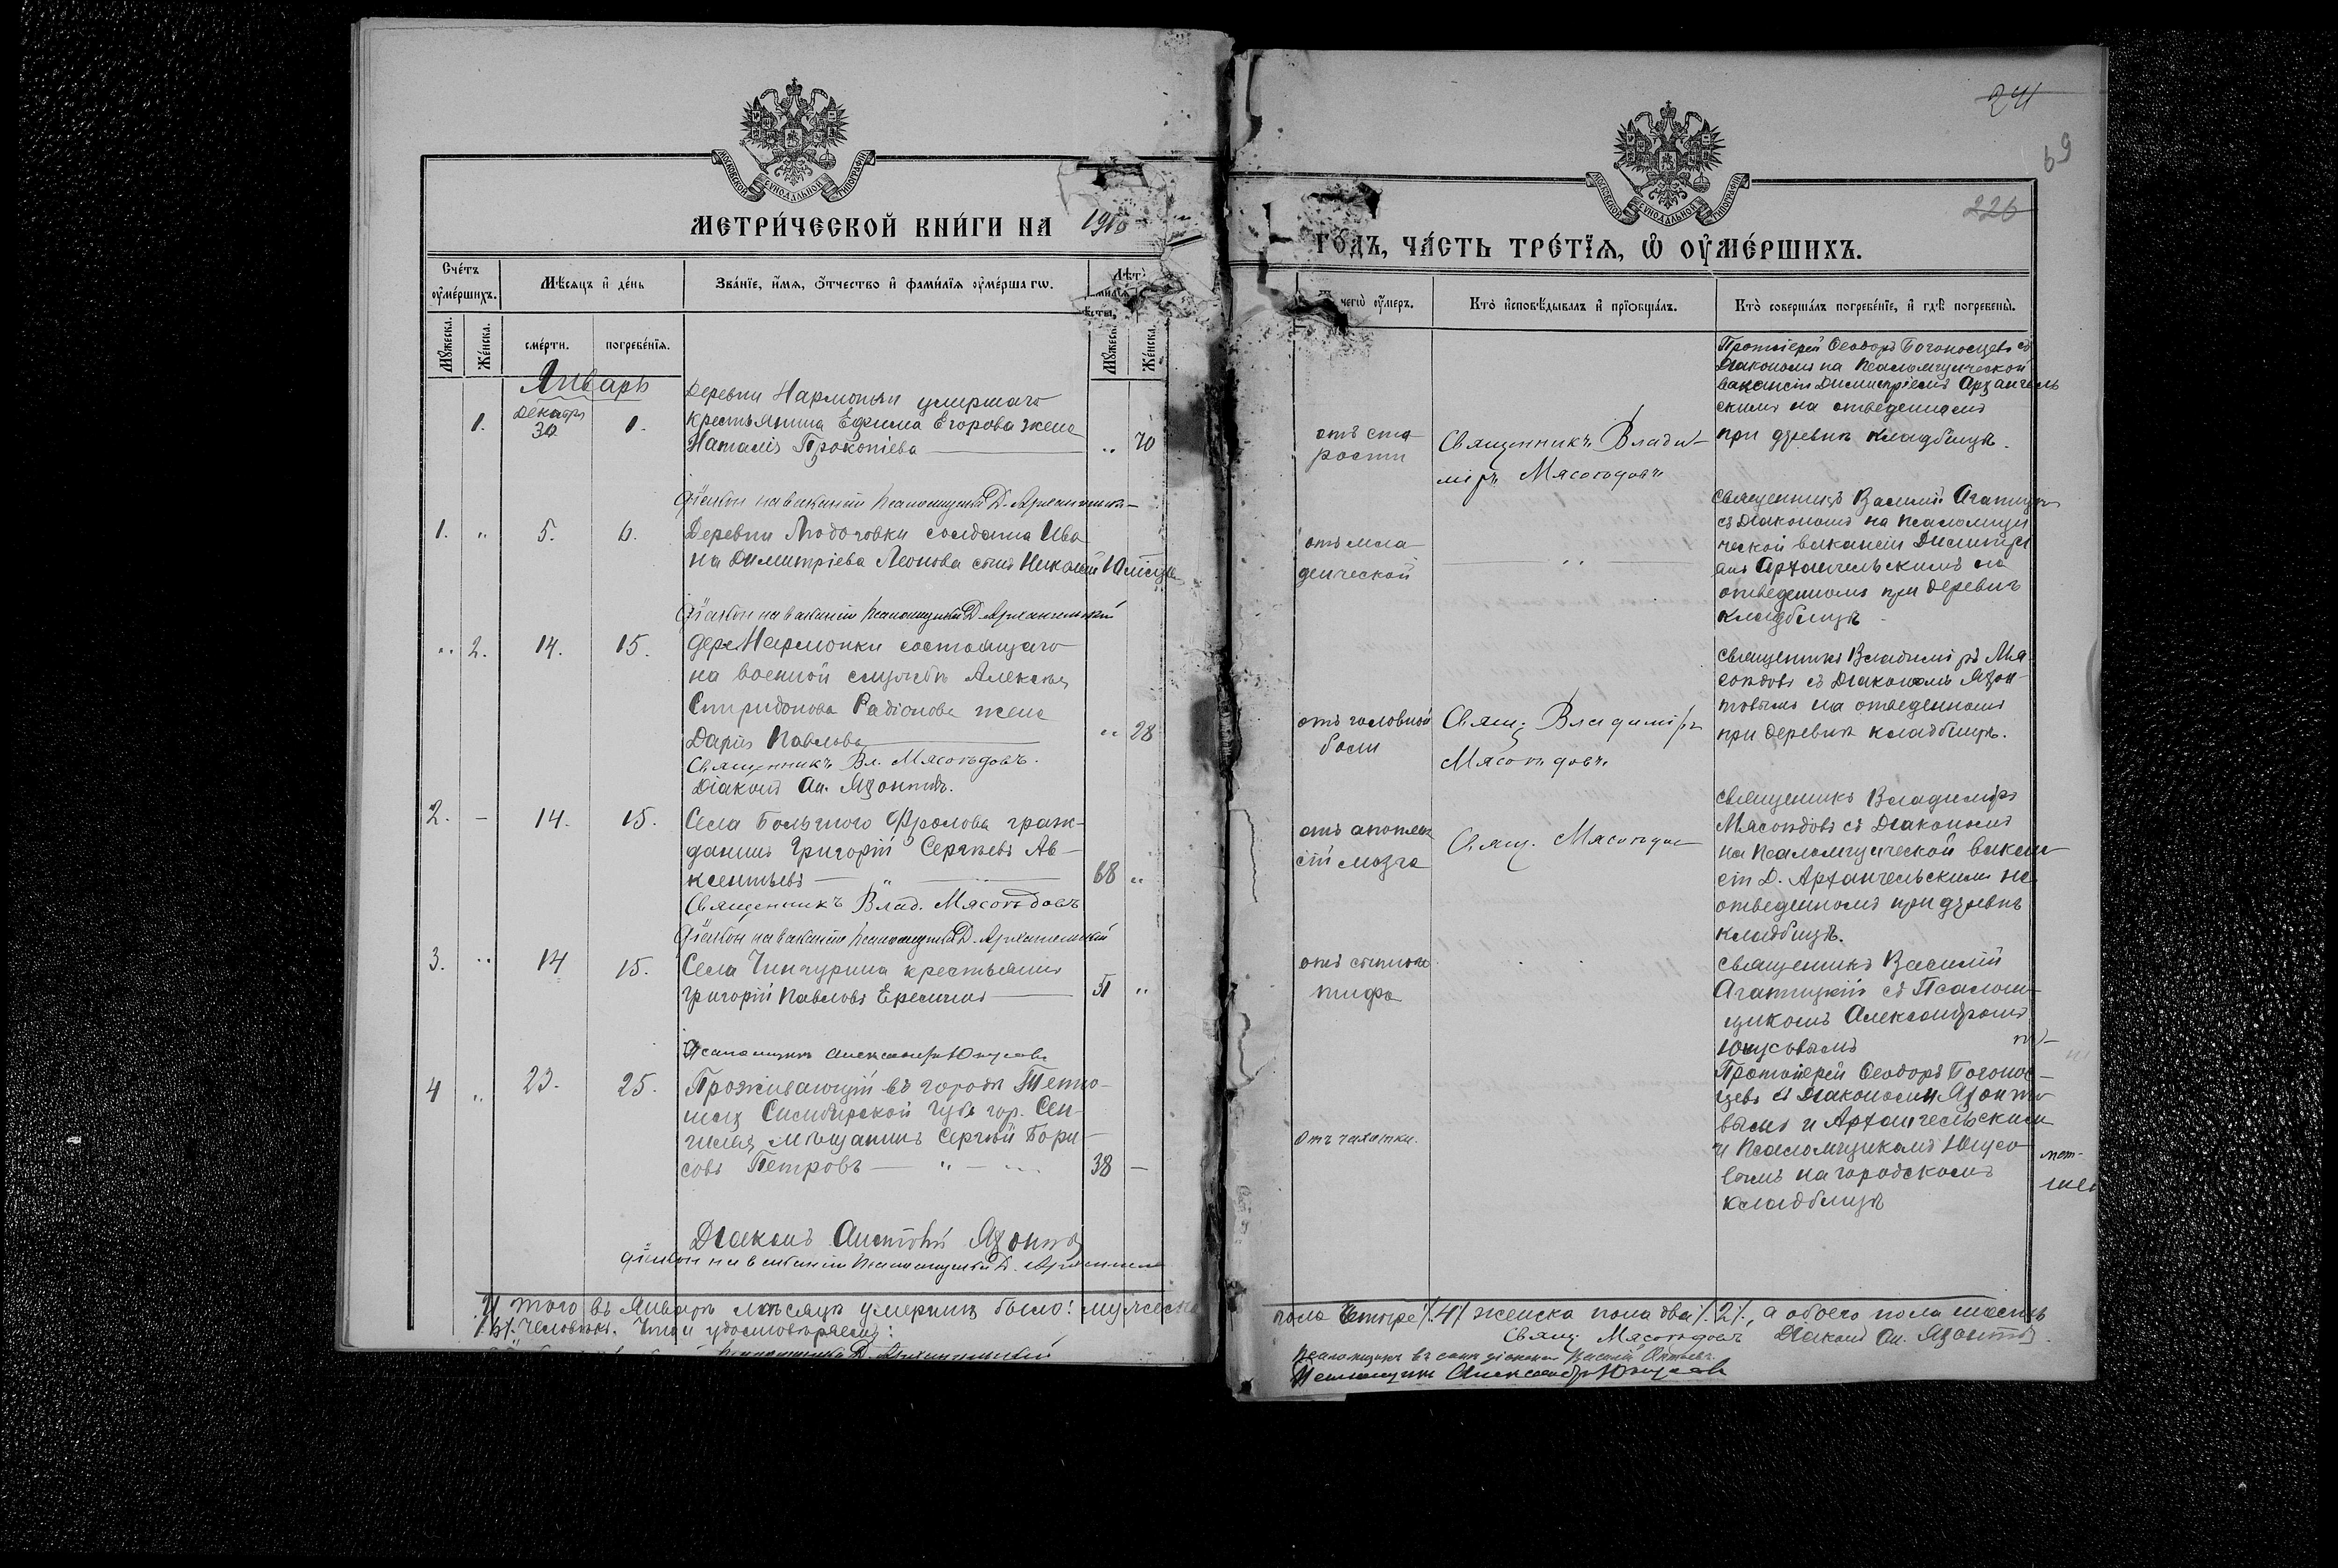 24
69
226
МОСКОВСКОЙ СѴНОДАЛЬНОЙ ТИПОГРАФИИ
МОСКОВСКОЙ СѴНОДАЛЬНОЙ ТИПОГРАФИИ
МЕТРИ́ЧЕСКОЙ КНИ́ГИ НА 1918
ГО́ДЪ, ЧА́СТЬ ТРЕ́ТЇѦ, Ѽ ОУ҆МЕ́РШИХЪ.
Сче́тъ оу҆ме́ршихъ.
Мѣ́сяцъ и҆ де́нь
Зва́нїе, и҆́мя, ѻ҆́тчество и҆ фами́лїя оу҆ме́рша гѡ.
Лѣ́тъ
Мꙋ́жеска.
Же́нска.
сме́рти.
погребе́нїя.
Мꙋ́жеск
Же́нска.
чегѡ̀ оу҆́меръ.
Кто̀ и҆сповѣ́дывалъ и҆ прїѡбща́лъ.
Кто̀ соверша́лъ погребе́нїе, и҆ гдѣ̀ погребены̀.
Январь
1.
Декабрь
30
1.
Деревни Нармонки умершаго
крестьянина Ефима Егорова жена
Наталія Прокопіева
70
отъ ста
рости
Священникъ Влади-
міръ Мясоѣдовъ
Протоіерей Ѳеодоръ Богоносцевъ съ
Діакономъ на псаломщической
вакансіи Димитріемъ Архангель
скимъ на отведенномъ
при деревнѣ кладбищѣ.
Діаконъ на вакансіи псаломщика Д. Архангельск
1. „ 5. 6.
Деревни Людоговки солдата Ива
на Димитріева Леонова сынъ Николай 10 мѣсяц
отъ мла
денческой
Священникъ Василій Агатицкій
съ Діакономъ на псаломщи
ческой вакансіи Димитрі
емъ Архангельскимъ на
отведенномъ при деревнѣ
кладбищѣ
Діаконъ на вакансіи псаломщика Д. Архангельскій
„ 2. 14. 15.
дер. Нармонки состоящаго
на военной службѣ Алексѣя
Спиридонова Радіонова жена
Дарія Павлова
„ 28
Священникъ Вл. Мясоѣдовъ.
Діаконъ Ап. Язонтовъ.
отъ головной
боли
Свящ. Владиміръ
Мясоѣдовъ
Священникъ Владиміръ Мя
соѣдовъ съ Діакономъ Язон-
товымъ на отведенномъ
при деревнѣ кладбищѣ.
2. – 14. 15.
Села Большого Фролова граж-
данинъ Григорій Сергѣевъ Ав-
ксентьевъ
68 „
Священникъ Влад. Мясоѣдовъ
Діаконъ на вакансіи псаломщика Д. Архангельскій
отъ апоплек
сіи мозга
Свящ. Мясоѣдов
Священникъ Владиміръ
Мясоѣдовъ съ Діакономъ
на псаломщической вакан-
сіи Д. Архангельскимъ на
отведенномъ при деревнѣ
кладбищѣ.
3. „ 14 15.
Села Чинчурина крестьянинъ
Григорій Павловъ Ереминъ
51 „
отъ сыпного
тифа
Священникъ Василій
Агатицкій съ Псалом-
щикомъ Александромъ
Юнусовымъ
Псаломщикъ Александръ Юнусовъ
4 „ 23. 25.
Проживающій въ городѣ Тетю-
шах Симбирской губ. гор. Сен-
гилея мѣщанинъ Сергѣй Бори-
совъ Петровъ
38 –
Отъ чахотки.
Протоіерей Ѳеодоръ Богонос-
цевъ съ Діаконами Язонто
вымъ и Архангельскимъ
и псаломщикомъ Юнусо
вымъ на городскомъ
кладбищѣ
Діаконъ Ап Язонтов
Діаконъ на вакансіи псаломщика Д. Архангельск
И того въ Январѣ мѣсяцѣ умершихъ было: мужеска
пола четыре /4/ женска пола два /2/, а обоего пола шесть
/6/ человѣкъ.
удостовѣряемъ:
Свящ. Мясоѣдовъ Діаконъ Ап. Язонтовъ.
псаломщика Д. Архангельскій
Псаломщикъ въ санѣ діакона Василій
Псаломщикъ Александръ Юнусовъ